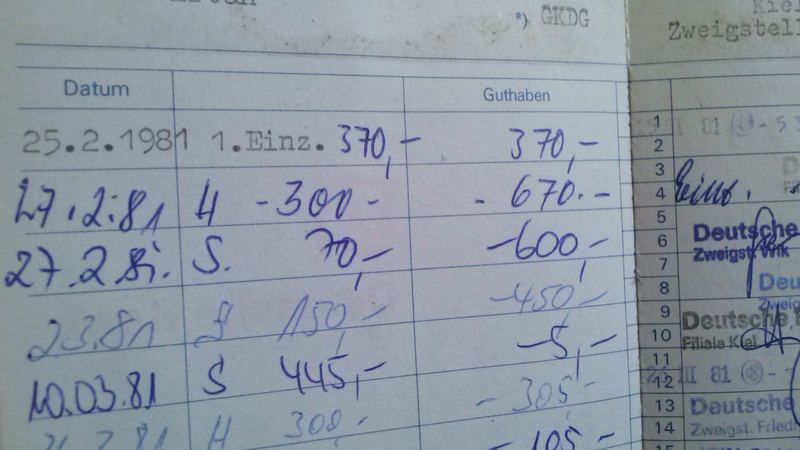 *) GKDG
Kiel
Zweigstell
Datum
Guthaben
25.2.1981 1.Einz. 370,- 370,-
27.2.81 H -300- - 670.-
27.2 81. S. 70,- -600,-
2.3.81 S 150,- -450,-
10.03.81 S 445,- -5,-
H 300,- - 305,-
- 105,-
1
2
81
3
4
5
6 Deutsche
7 Zweigst. Wik
8 Deu
9 Zweig
10 Deutsche
Filiale Kiel
11
12 III 81
13 Deutsche
14 Zweigst. Friedr
15